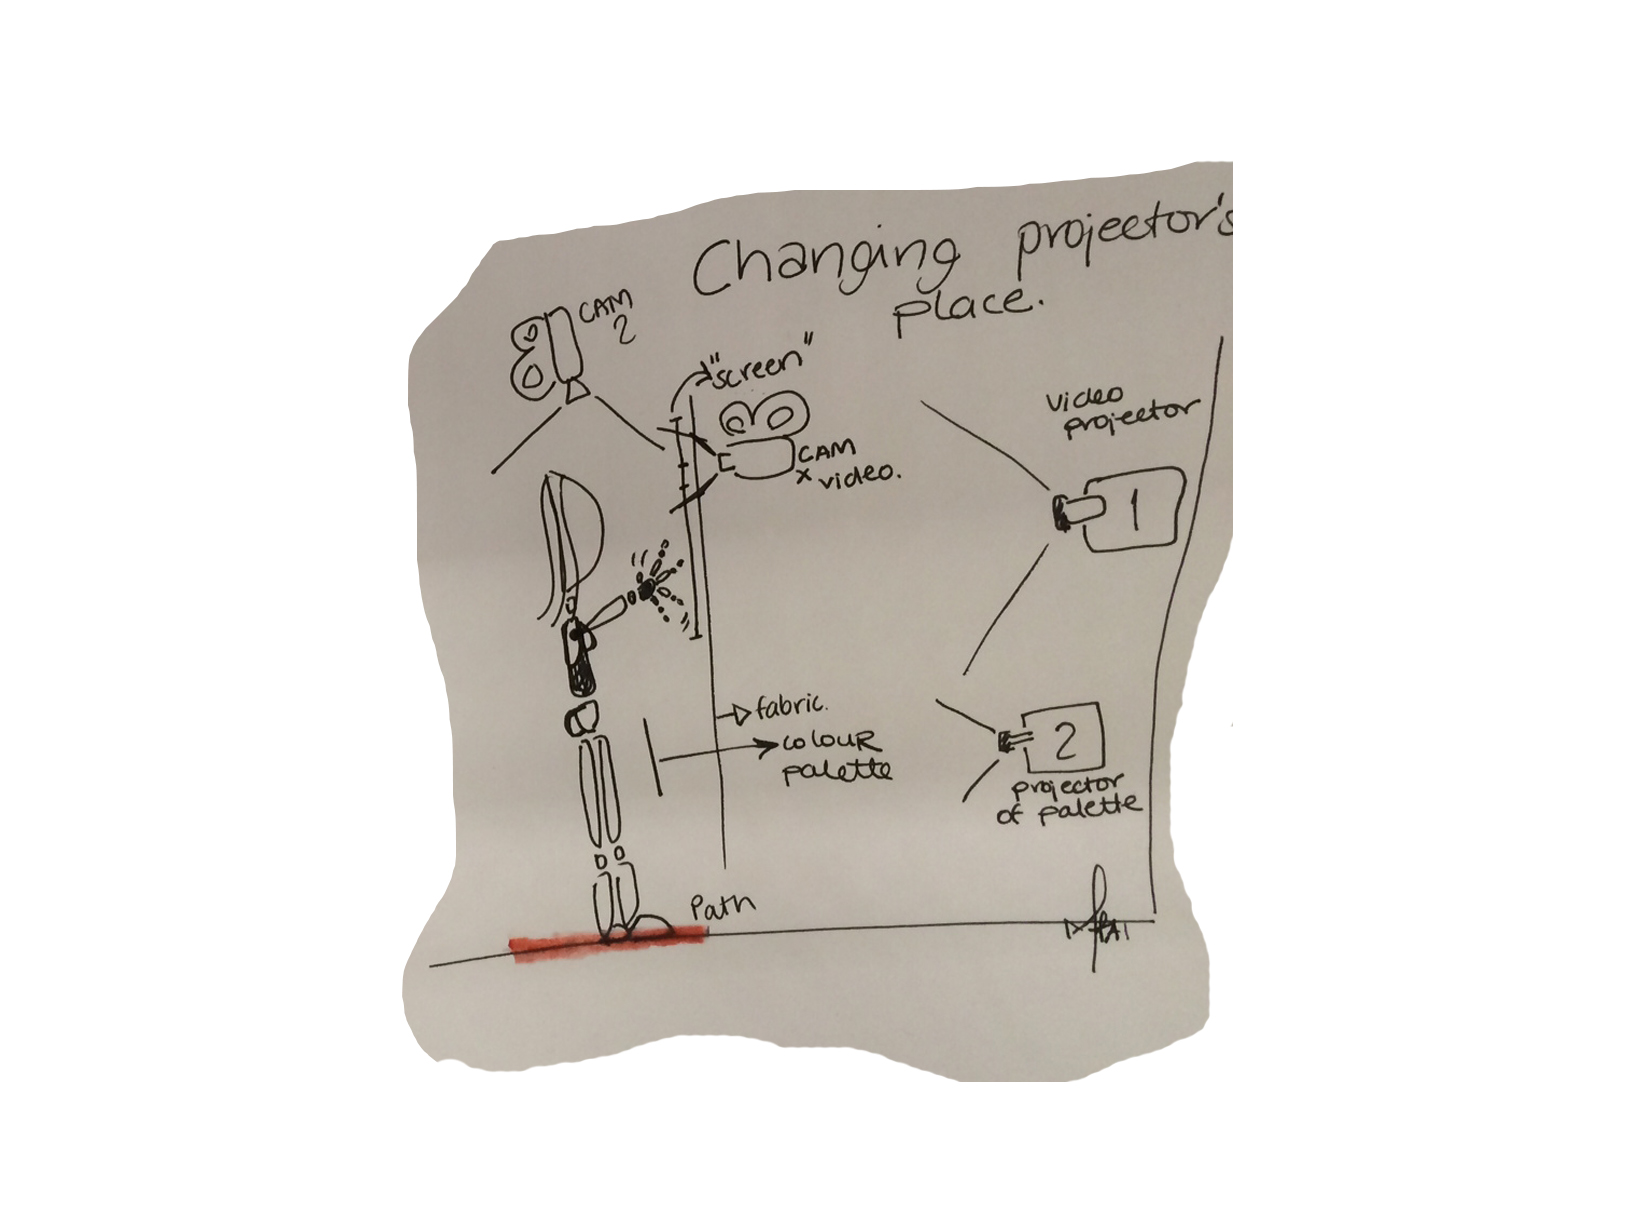 Changing projector's
place.
CAM
2
"screen"
CAM
x video.
video
projector
1
fabric.
colour
palette
2
projector
of palette
Path